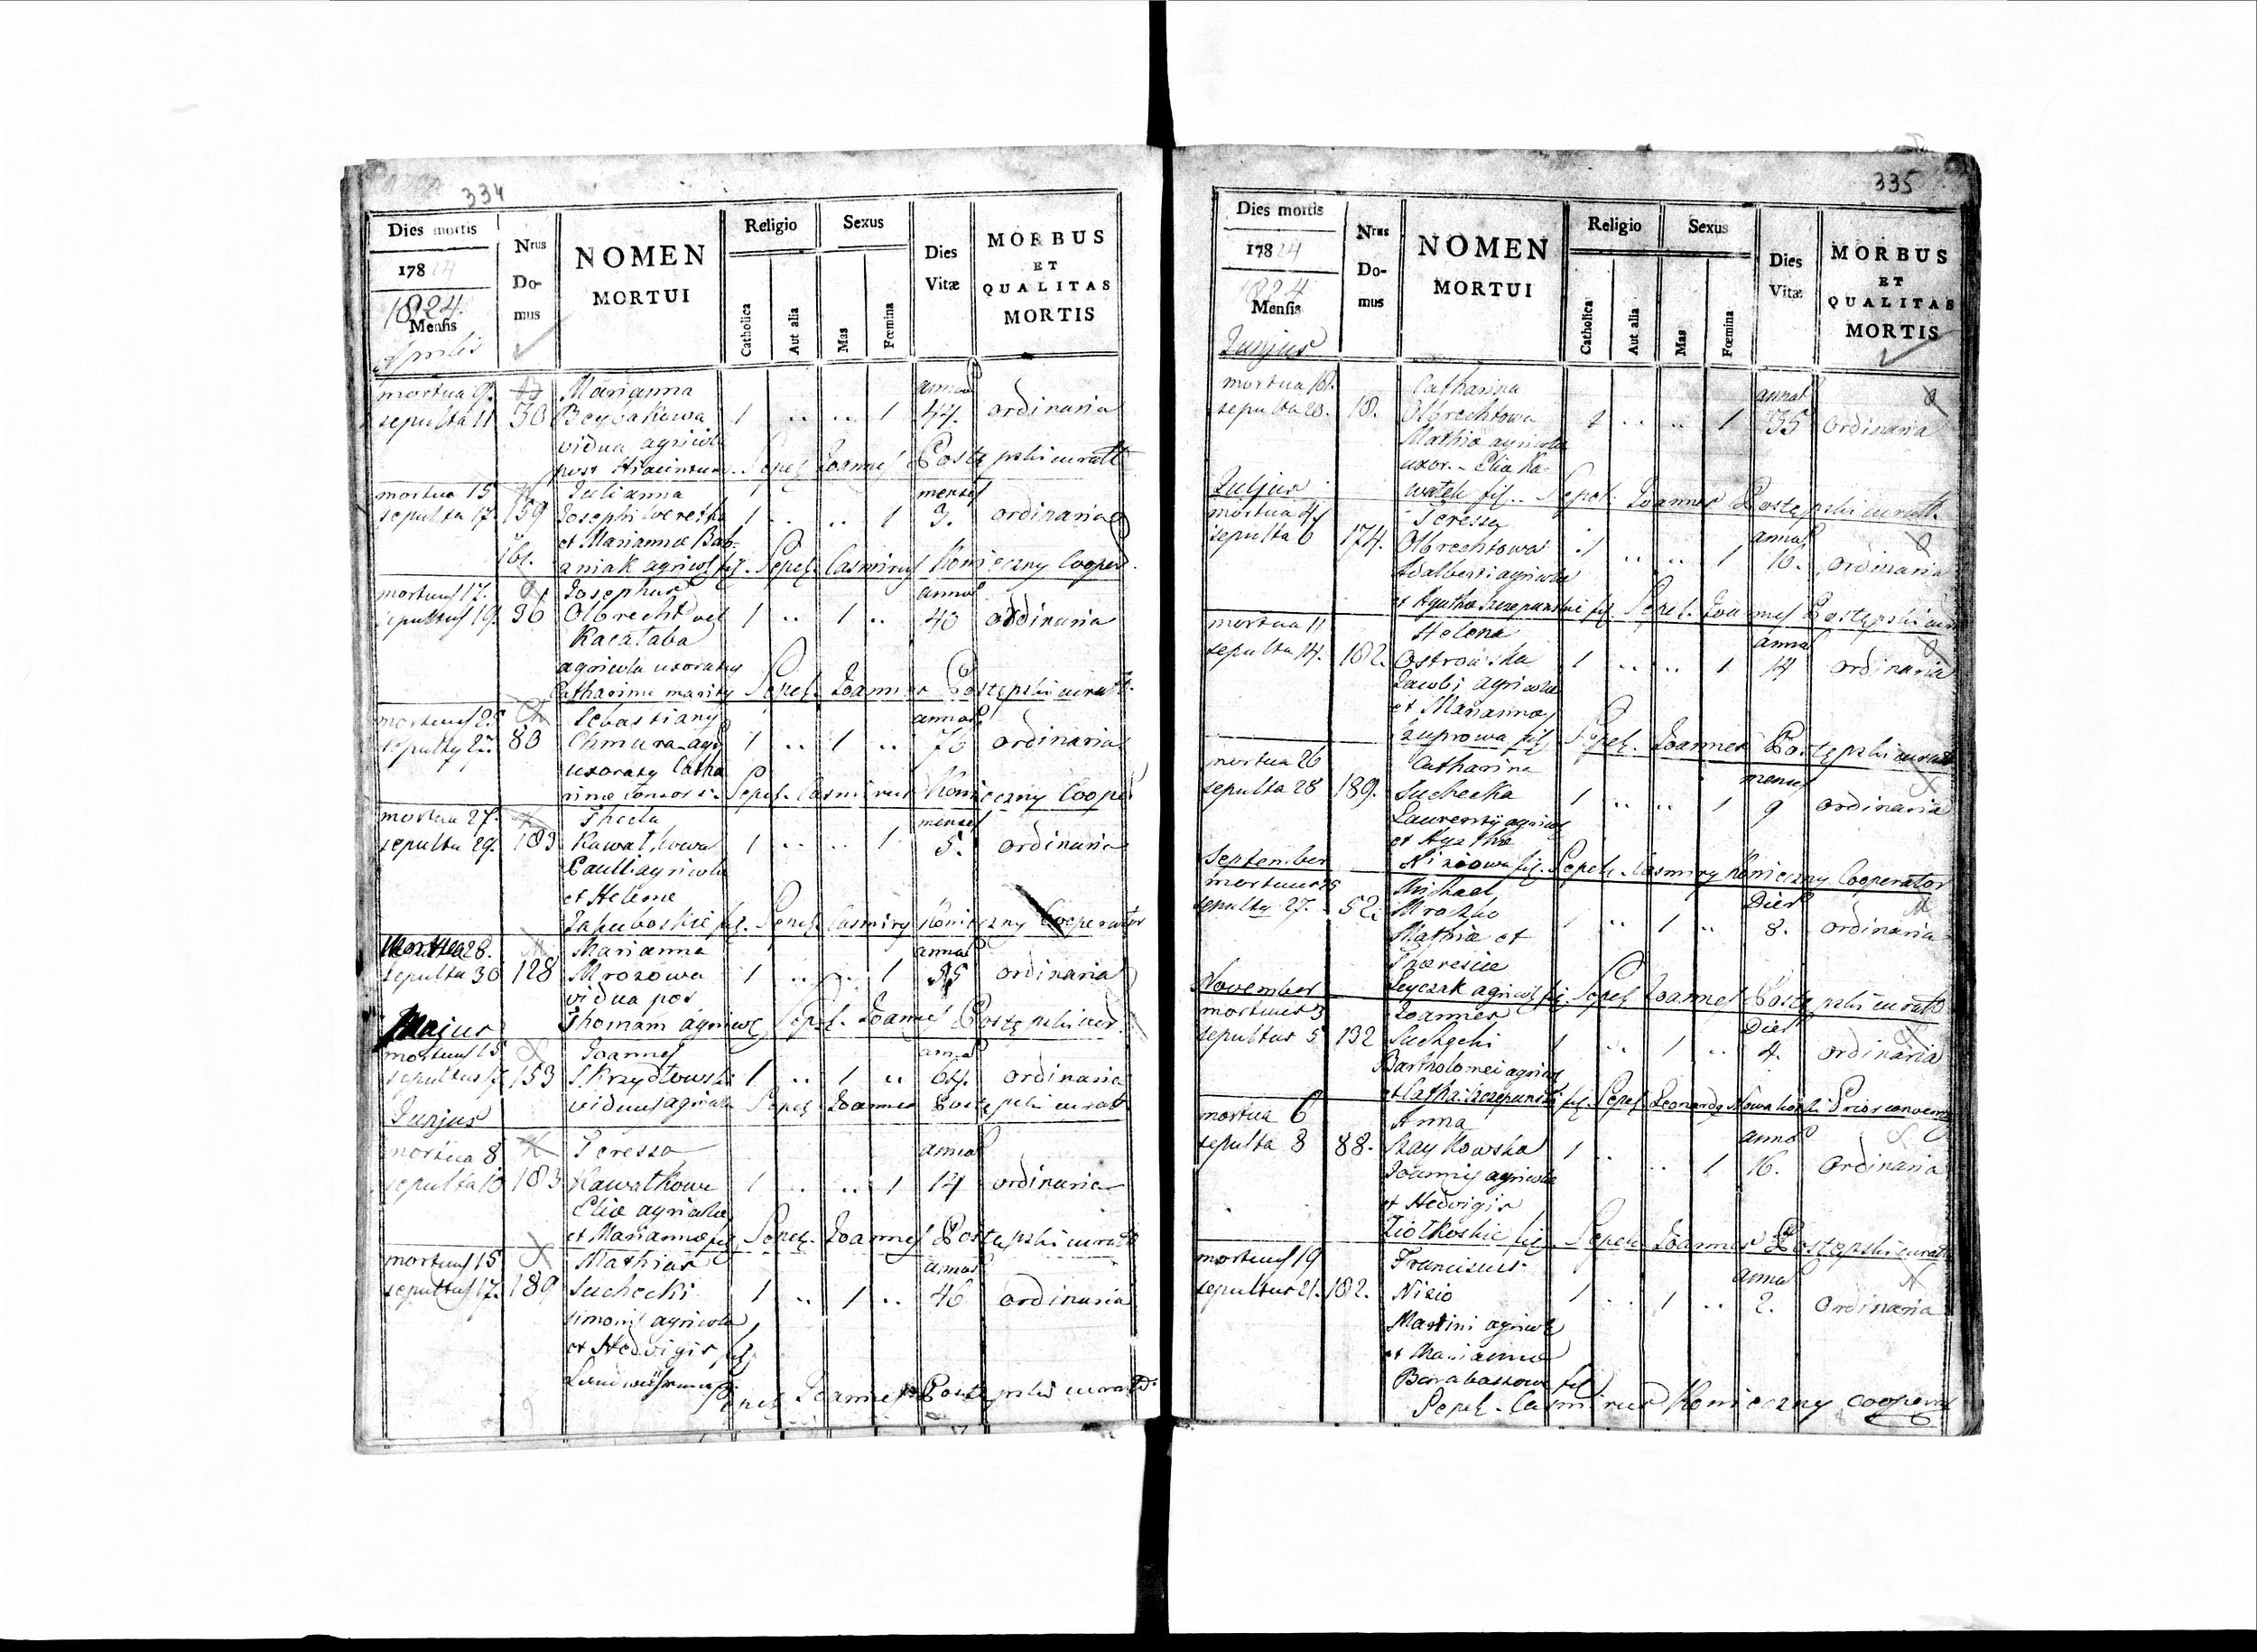 334
Dies mortis
178 24
1824.
Mensis
Aprilis
Nrus
Do-
mus
NOMEN
MORTUI
Religio
Catholica
Aut alia
Sexus
Mas
Fœmina
Dies
Vitæ
MORBUS
ET
QUALITAS
MORTIS
mortua 9. Marianna annos
sepulta 11 30 1 .. .. 1 44. ordinaria
vidua agricola
post Sepel. Joannes Postępski curatt
mortua 15 Julianna menses
sepulta 17. 159 Josephi 1 .. .. 1 9. ordinaria
et Mariannæ Bab-
161. aniak agricol fil. Sepel. Casimirus Konieczny Cooper.
mortuus 17. Josephus annos
sepultus 19. 36 Olbrecht vel 1 .. 1 .. 40 ordinaria
Kacataba
agricola uxoratus
Catharinæ maritus Sepel. Joannes Postępski curatt.
mortuus 25 Sebastianus annos
sepultus 27. 80 Chmura agr 1 .. 1 .. 70 ordinaria
uxoratus Catha
rinæ consors Sepel. Casimirus Konieczny Cooper
mortua 27. Thecla menses
sepulta 29. 183 Kawałkowa 1 .. .. 1 5. ordinaria
Paulli agricola
et Helenæ
Jakuboskie fil. Sepel. Casimirus Konieczny Cooperator
Mortua 28. Marianna annos
sepulta 30 128 Mrozowa 1 .. .. 1 55 ordinaria
vidua pos
Majus Thomam agricol Sepel. Joannes Postępski cur
mortuus 15 Joannes annos
sepultus 153 Skrzydłowski 1 .. 1 .. 64. ordinaria
viduus agricola Sepel. Joannes Postępski curatt
Junjus
mortua 8 Teressa annos
sepulta 10 183 Kawałkowa 1 .. .. 1 14 ordinaria
Eliæ agricolæ
et Mariannæ fil. Sepel. Joannes Postępski curatt
mortuus 15 Mathias annos
sepultus 17. 189 Suchecki 1 .. 1 .. 46 ordinaria
Simonis agricola
et Hedvigis fil.
Sepel. Joannes Postępski curatt.
335
Dies mortis
178 24
1824
Mensis
Junjus
Nrus
Do-
mus
NOMEN
MORTUI
Religio
Catholica
Aut alia
Sexus
Mas
Fœmina
Dies
Vitæ
MORBUS
ET
QUALITAS
MORTIS
mortua 18. Catharina annos
sepulta 20. 18. Olbrechtowa 1 .. .. 1 35 ordinaria
Mathiæ agricola
uxor. Elia Ka-
Juljus wałek fil. Sepel. Joannes Postępski curatt.
mortua 4. Teressa annos
sepulta 6 174. Olbrechtowa 1 .. .. 1 10. ordinaria
Adalberti agricola
et Agatha Szczepanskie fil. Sepel. Joannes Postępski cur
mortua 11 Helena annos
sepulta 14. 182. Ostrowska 1 .. .. 1 14 ordinaria
Jacobi agricola
et Mariannæ
Żuprowa fil Sepel. Joannes Postępski curatt
mortua 26 Catharina menses
sepulta 28 189. Suchecka 1 .. .. 1 9 ordinaria
Laurentii agricol
et Agathæ
September Niziowa fil. Sepel. Casimirus Konieczny Cooperator
mortuus 25 Michael Dies
sepultus 27. 52. Mrozko 1 .. 1 .. 8. ordinaria
Mathiæ et
Theresiæ
November agricol fil. Sepel Joannes Postępski curatt
mortuus 3 Joannes Dies
sepultus 5 132 Suchecki 1 .. 1 .. 4. ordinaria
Bartholomei agricol
et Catha. Szczepanski fil. Sepel. Leonardus Nowakoski Prior
mortua 6 Anna annos
sepulta 8 88. 1 .. .. 1 16. ordinaria
Joannis agricola
et Hedvigis
Ziołkoskie fil. Sepel. Joannes Postępski curatt
mortuus 19 Franciscus annos
sepultus 21. 182. Nizio 1 .. 1 .. 2. ordinaria
Martini agricol
et Mariannæ
Barabaszowa fil
Sepel. Casimirus Konieczny cooperat